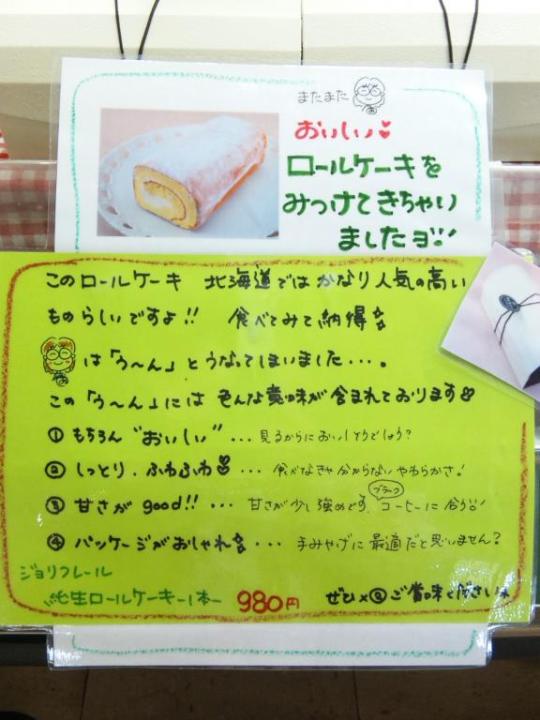 またまた
おいしい♥
ロールケーキを
みつけてきちゃい
ましたヨ!!
このロールケーキ 北海道ではかなり人気の高い
ものらしいですよ!! 食べてみて納得
は「う〜ん」とうなってしまいました・・・。
この「う〜ん」には 色んな意味が含まれております
① もちろん "おいしい"・・・見るからにおいしそうでしょう?
② しっとり、ふわふわ♥ ・・・ 食べなきゃ分からないやわらかさ!
③ 甘さが good!! ・・・ 甘さが少し強めです。ブラックコーヒーに合う!!
④ パッケージがおしゃれ ・・・ 手みやげに最適だと思いません?
ジョリフレール
生ロールケーキ 1本 980円 ぜひ×② ご賞味ください